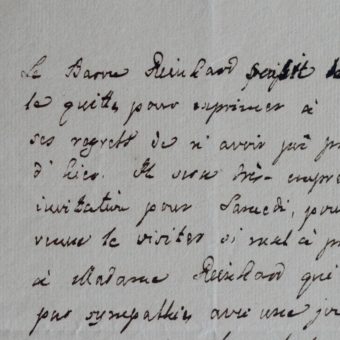 Le Baron Reinhard
le quitte pour exprimer à
ses regrets de n'avoir pu
d'hier. Il sera très-
invitation pour Samedi, pour
venu le visiter si mal à
à Madame Reinhard qui
pas sympathie avec une